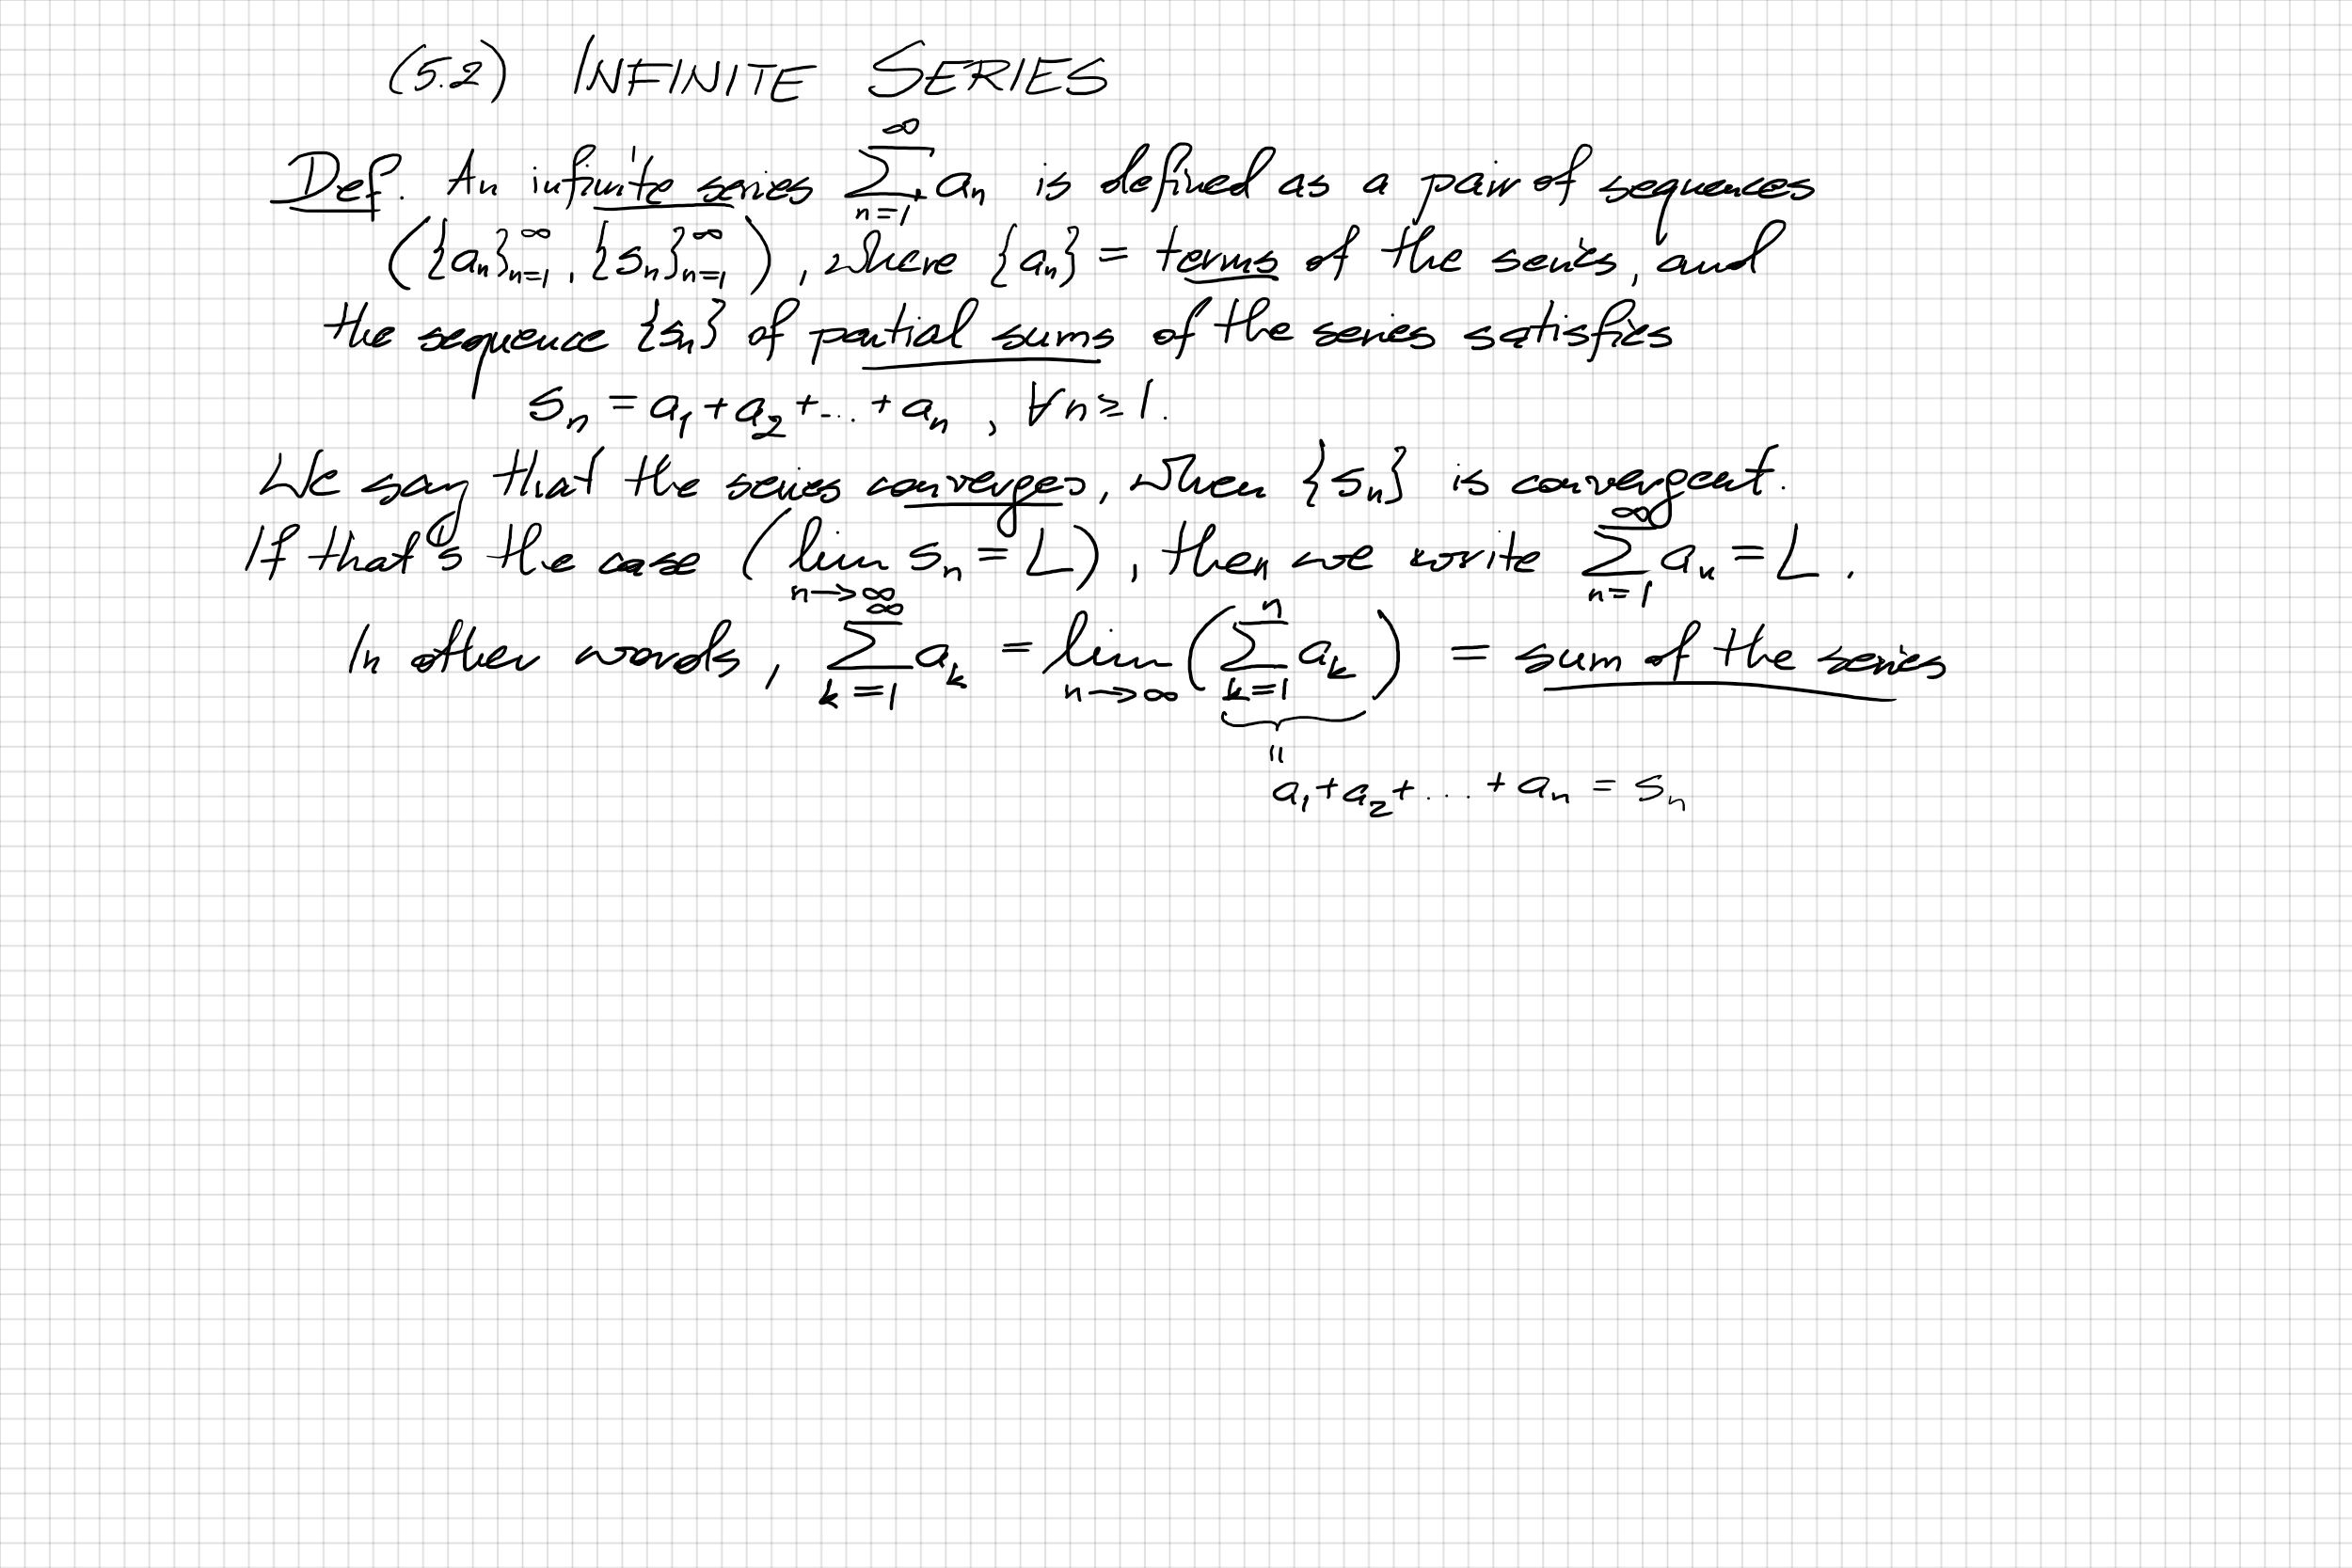 (5.2) INFINITE SERIES
Def. An infinite series $\sum_{n=1}^{\infty} a_n$ is defined as a pair of sequences
$(\{a_n\}_{n=1}^{\infty}, \{s_n\}_{n=1}^{\infty})$, where $\{a_n\}$ = terms of the series, and
the sequence $\{s_n\}$ of partial sums of the series satisfies
$s_n = a_1 + a_2 + \dots + a_n$, $\forall n \geq 1$.
We say that the series converges, when $\{s_n\}$ is convergent.
If that's the case ($\lim_{n \to \infty} s_n = L$), then we write $\sum_{n=1}^{\infty} a_n = L$.
In other words, $\sum_{k=1}^{\infty} a_k = \lim_{n \to \infty} \left( \sum_{k=1}^{n} a_k \right)$ = sum of the series
=
$a_1 + a_2 + \dots + a_n = s_n$